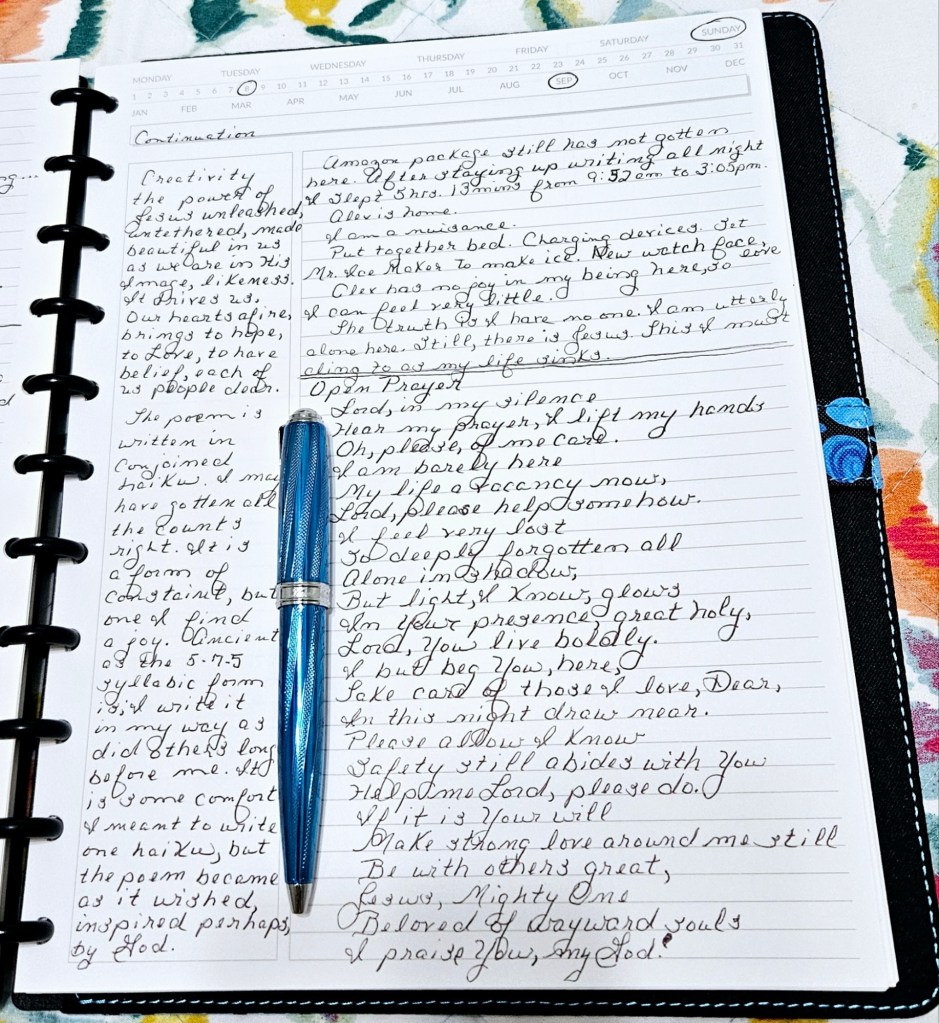 MONDAY TUESDAY WEDNESDAY THURSDAY FRIDAY SATURDAY SUNDAY
1 2 3 4 5 6 7 8 9 10 11 12 13 14 15 16 17 18 19 20 21 22 23 24 25 26 27 28 29 30 31
JAN FEB MAR APR MAY JUN JUL AUG SEP OCT NOV DEC
Continuation
Creativity
the power of
Jesus unleashed,
untethered, made
beautiful in us
as we are in His
image, likeness.
It drives us,
Our hearts afire,
brings to hope,
to Love, to have
belief, each of
us people dear.
The poem is
written in
conjoined
haiku. I may
have gotten all
the counts
right. It is
a form of
constaint, but
one I find
a joy. Ancient
as the 5-7-5
syllabic form
is, I write it
in my way as
did others long
before me. It
is some comfort
I meant to write
one haiku, but
the poem became
as it wished,
inspired perhaps,
by God.
Amazon package still has not gotten
here. After staying up writing all night
I slept 5hrs. 13mins from 9:52am to 3:05pm.
Alex is home.
I am a nuisance.
Put together bed. Charging devices. Set
Mr. Ice Maker To make ice. New watch face,
Alex has no joy in my being here, so love
I can feel very little.
The truth is I have no one. I am utterly
alone here. Still, there is Jesus. This I must
cling to as my life sinks.
Open Prayer
Lord, in my silence
Hear my prayer, I lift my hands
Oh, please, of me care.
I am barely here
My life a vacancy now,
Lord, please help somehow.
I feel very lost
So deeply forgotten all
Alone in shadow,
But light, I know, glows
In Your presence, great holy,
Lord, You live boldly.
I but beg You, here,
Take care of those I love, Dear,
In this night draw near.
Please allow I know
Safety still abides with You
Help me Lord, please do.
If it is Your will
Make strong love around me still
Be with others great,
Jesus, Mighty One
Beloved of wayward souls
I praise You, my God!